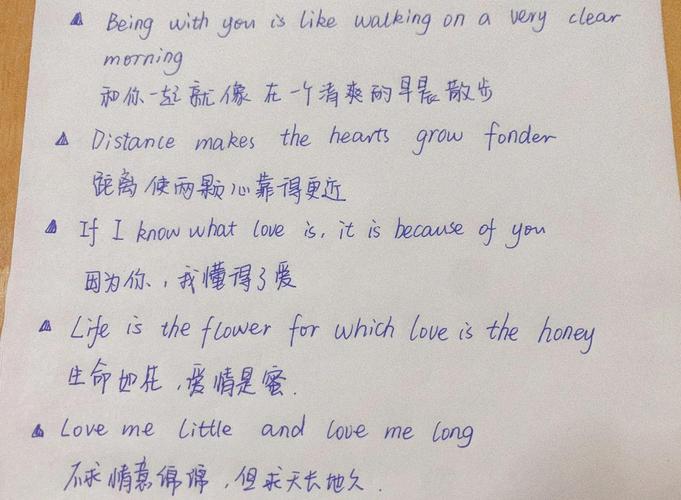 Being with you is like walking on a very clear
morning
和你一起就像在一个清爽的早晨散步
Distance makes the hearts grow fonder
距离使两颗心靠得更近
If I know what love is, it is because of you
因为你，我懂得了爱
Life is the flower for which love is the honey
生命如花，爱情是蜜.
Love me little and love me long
不求情意绵绵，但求天长地久.